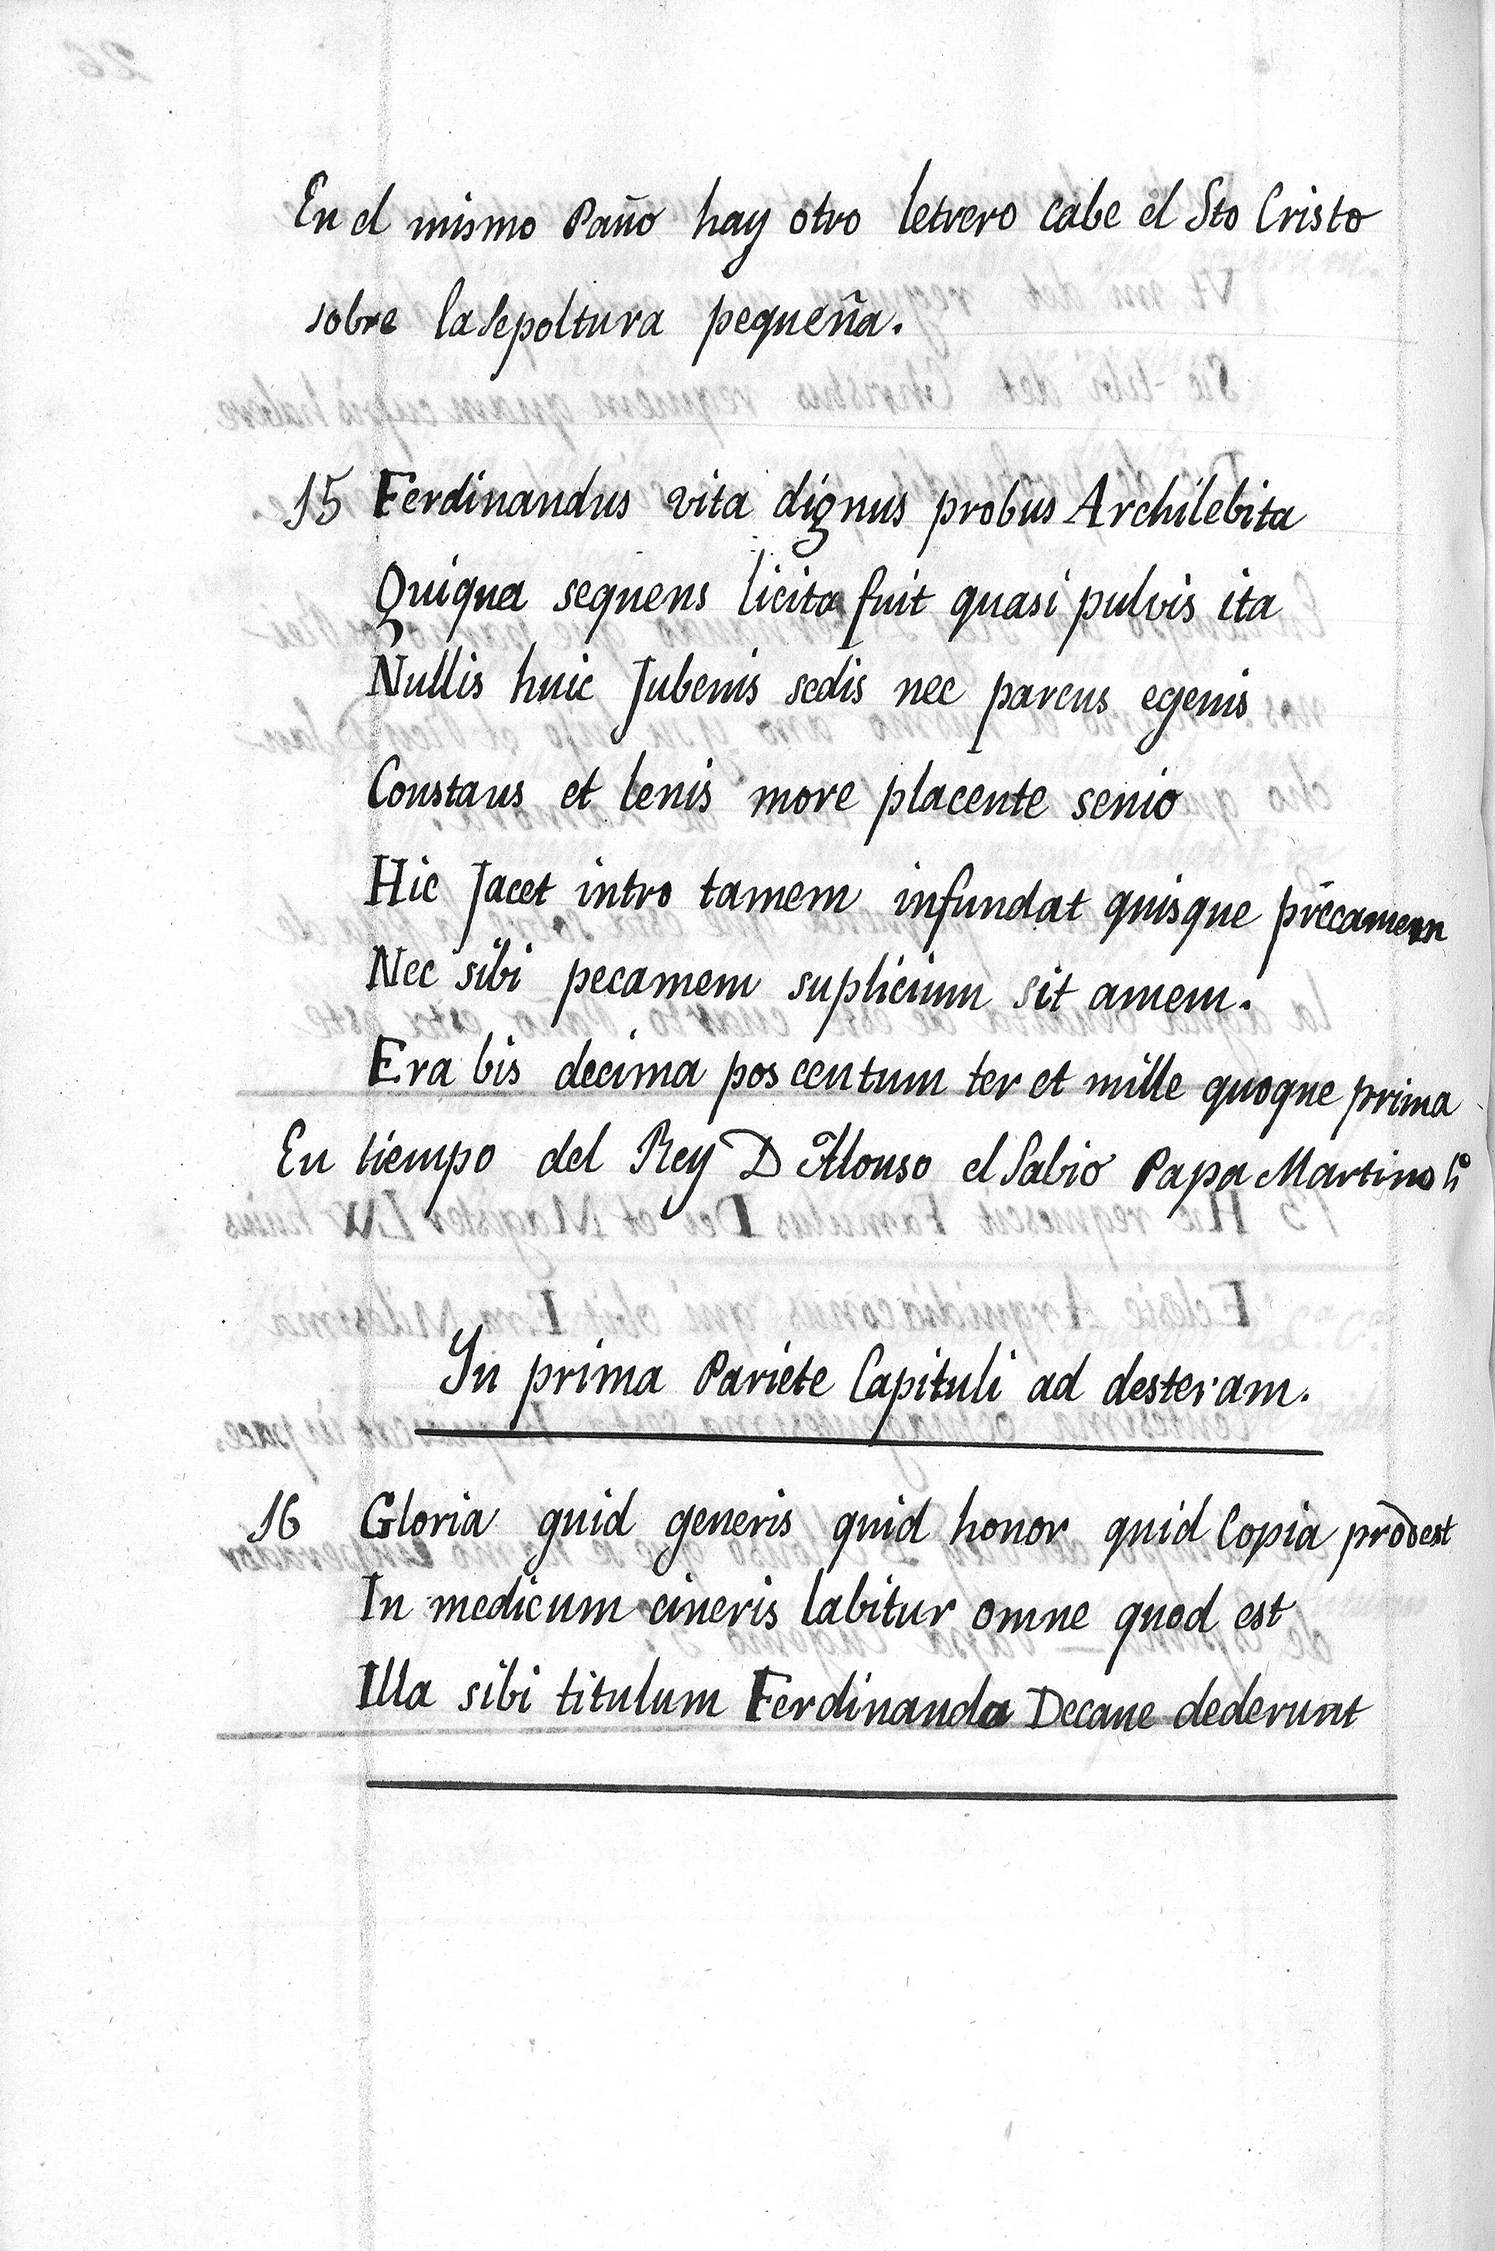 En el mismo Paño hay otro letrero cabe el Sto Cristo
sobre la Sepoltura pequeña.
15 Ferdinandus vita dignus probus Archilebita
Quiqua sequens licita fuit quasi pulvis ita
Nullis huic Jubenis sedis nec parcus egenis
Constans et lenis more placente senio
Hic Jacet intro tamem infundat quisque précamem
Nec sibi pecamem suplicium sit amem.
Era bis decima pos centum ter et mille quoque prima
En tiempo del Rey D Alonso el Sabio Papa Martino 4º
In prima Pariete Capituli ad desteram.
16 Gloria quid generis quid honor quid Copia prodest
In medicum cineris labitur omne quod est
Illa sibi titulum Ferdinanda Decane dederunt